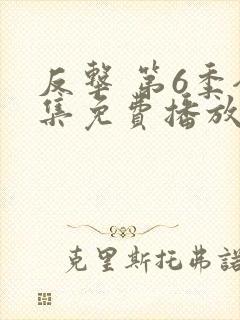 反擊 第6季
集免費播放
克里斯托弗諾